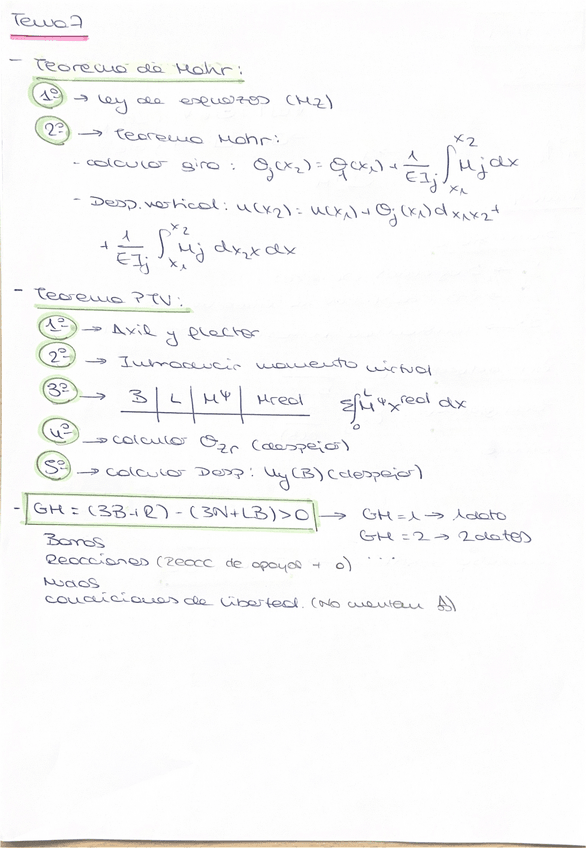 Tema 7
- Teorema de Mohr:
1º → Ley de esfuerzos (Mz)
2º → Teorema Mohr:
- calcular giro: θj(x2) = θ1(x1) + 1/EIj ∫x1x2 Mj dx
- Desp. vertical: u(x2) = u(x1) + θj(x1) dx1x2 +
+ 1/EIj ∫x1x2 Mj dx2x dx
- Teorema PTV:
1º → Axil y flector
2º → Introducir momento virtual
3º → B | L | MΨ | Mreal Σ∫0L MΨ x real dx
4º → calculo θzr (despejar)
5º → calculo Desp: uy(B) (despejar)
- GH = (3B+R) - (3N+LB) > 0 → GH = 1 → 1 dato
GH = 2 → 2 datos
Barras
Reacciones (reacc de apoyos + 0) ...
Nudos
condiciones de libertad. (No cuentan)